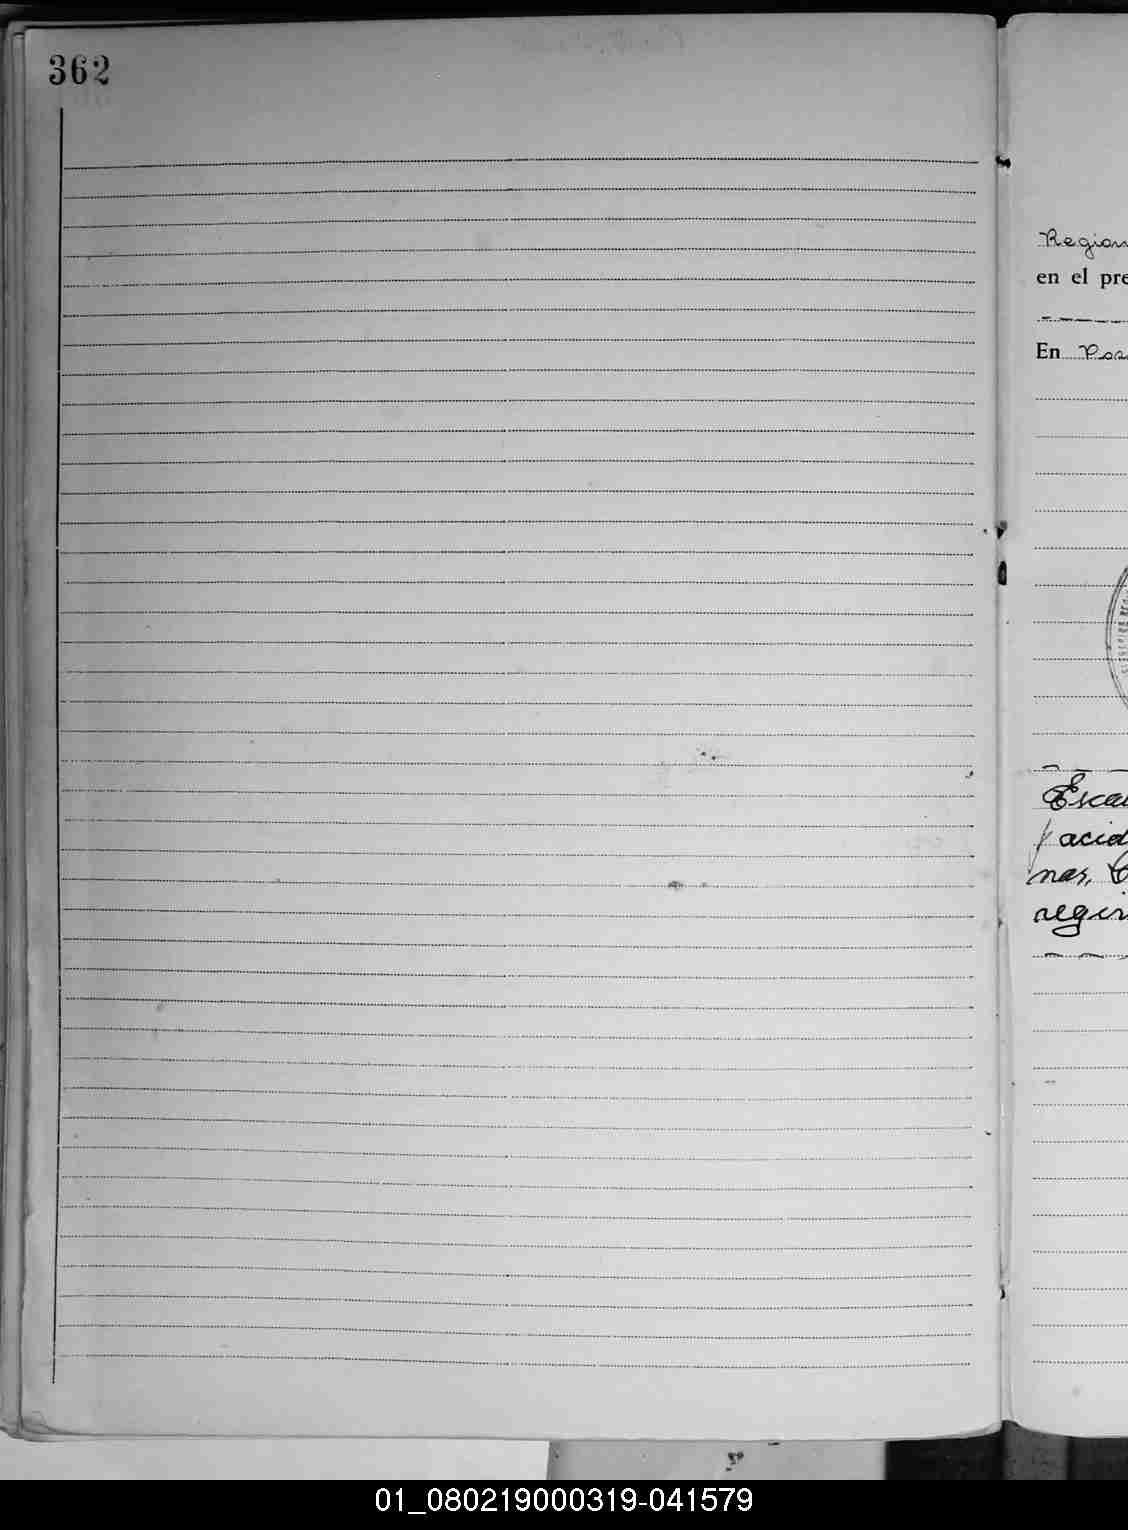 362
Region
en el pre
En Pos
Esca
acid
nas, C
regis
01_080219000319-041579